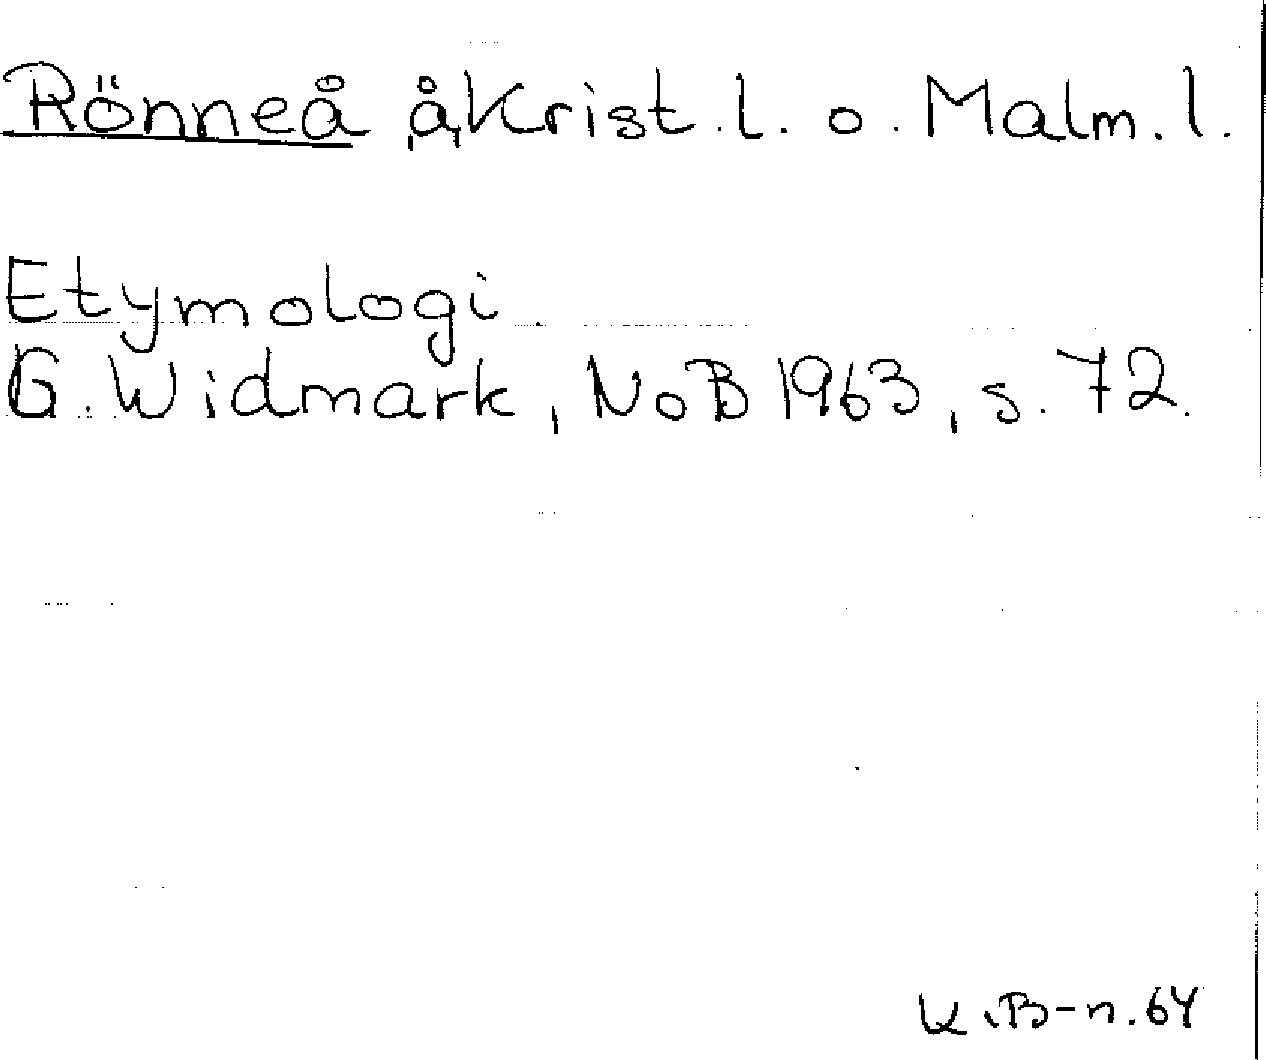 Rönneå å, Krist. l. o. Malm. l.
Etymologi
G. Widmark, NoB 1963, s. 72.
K.B-n. 64